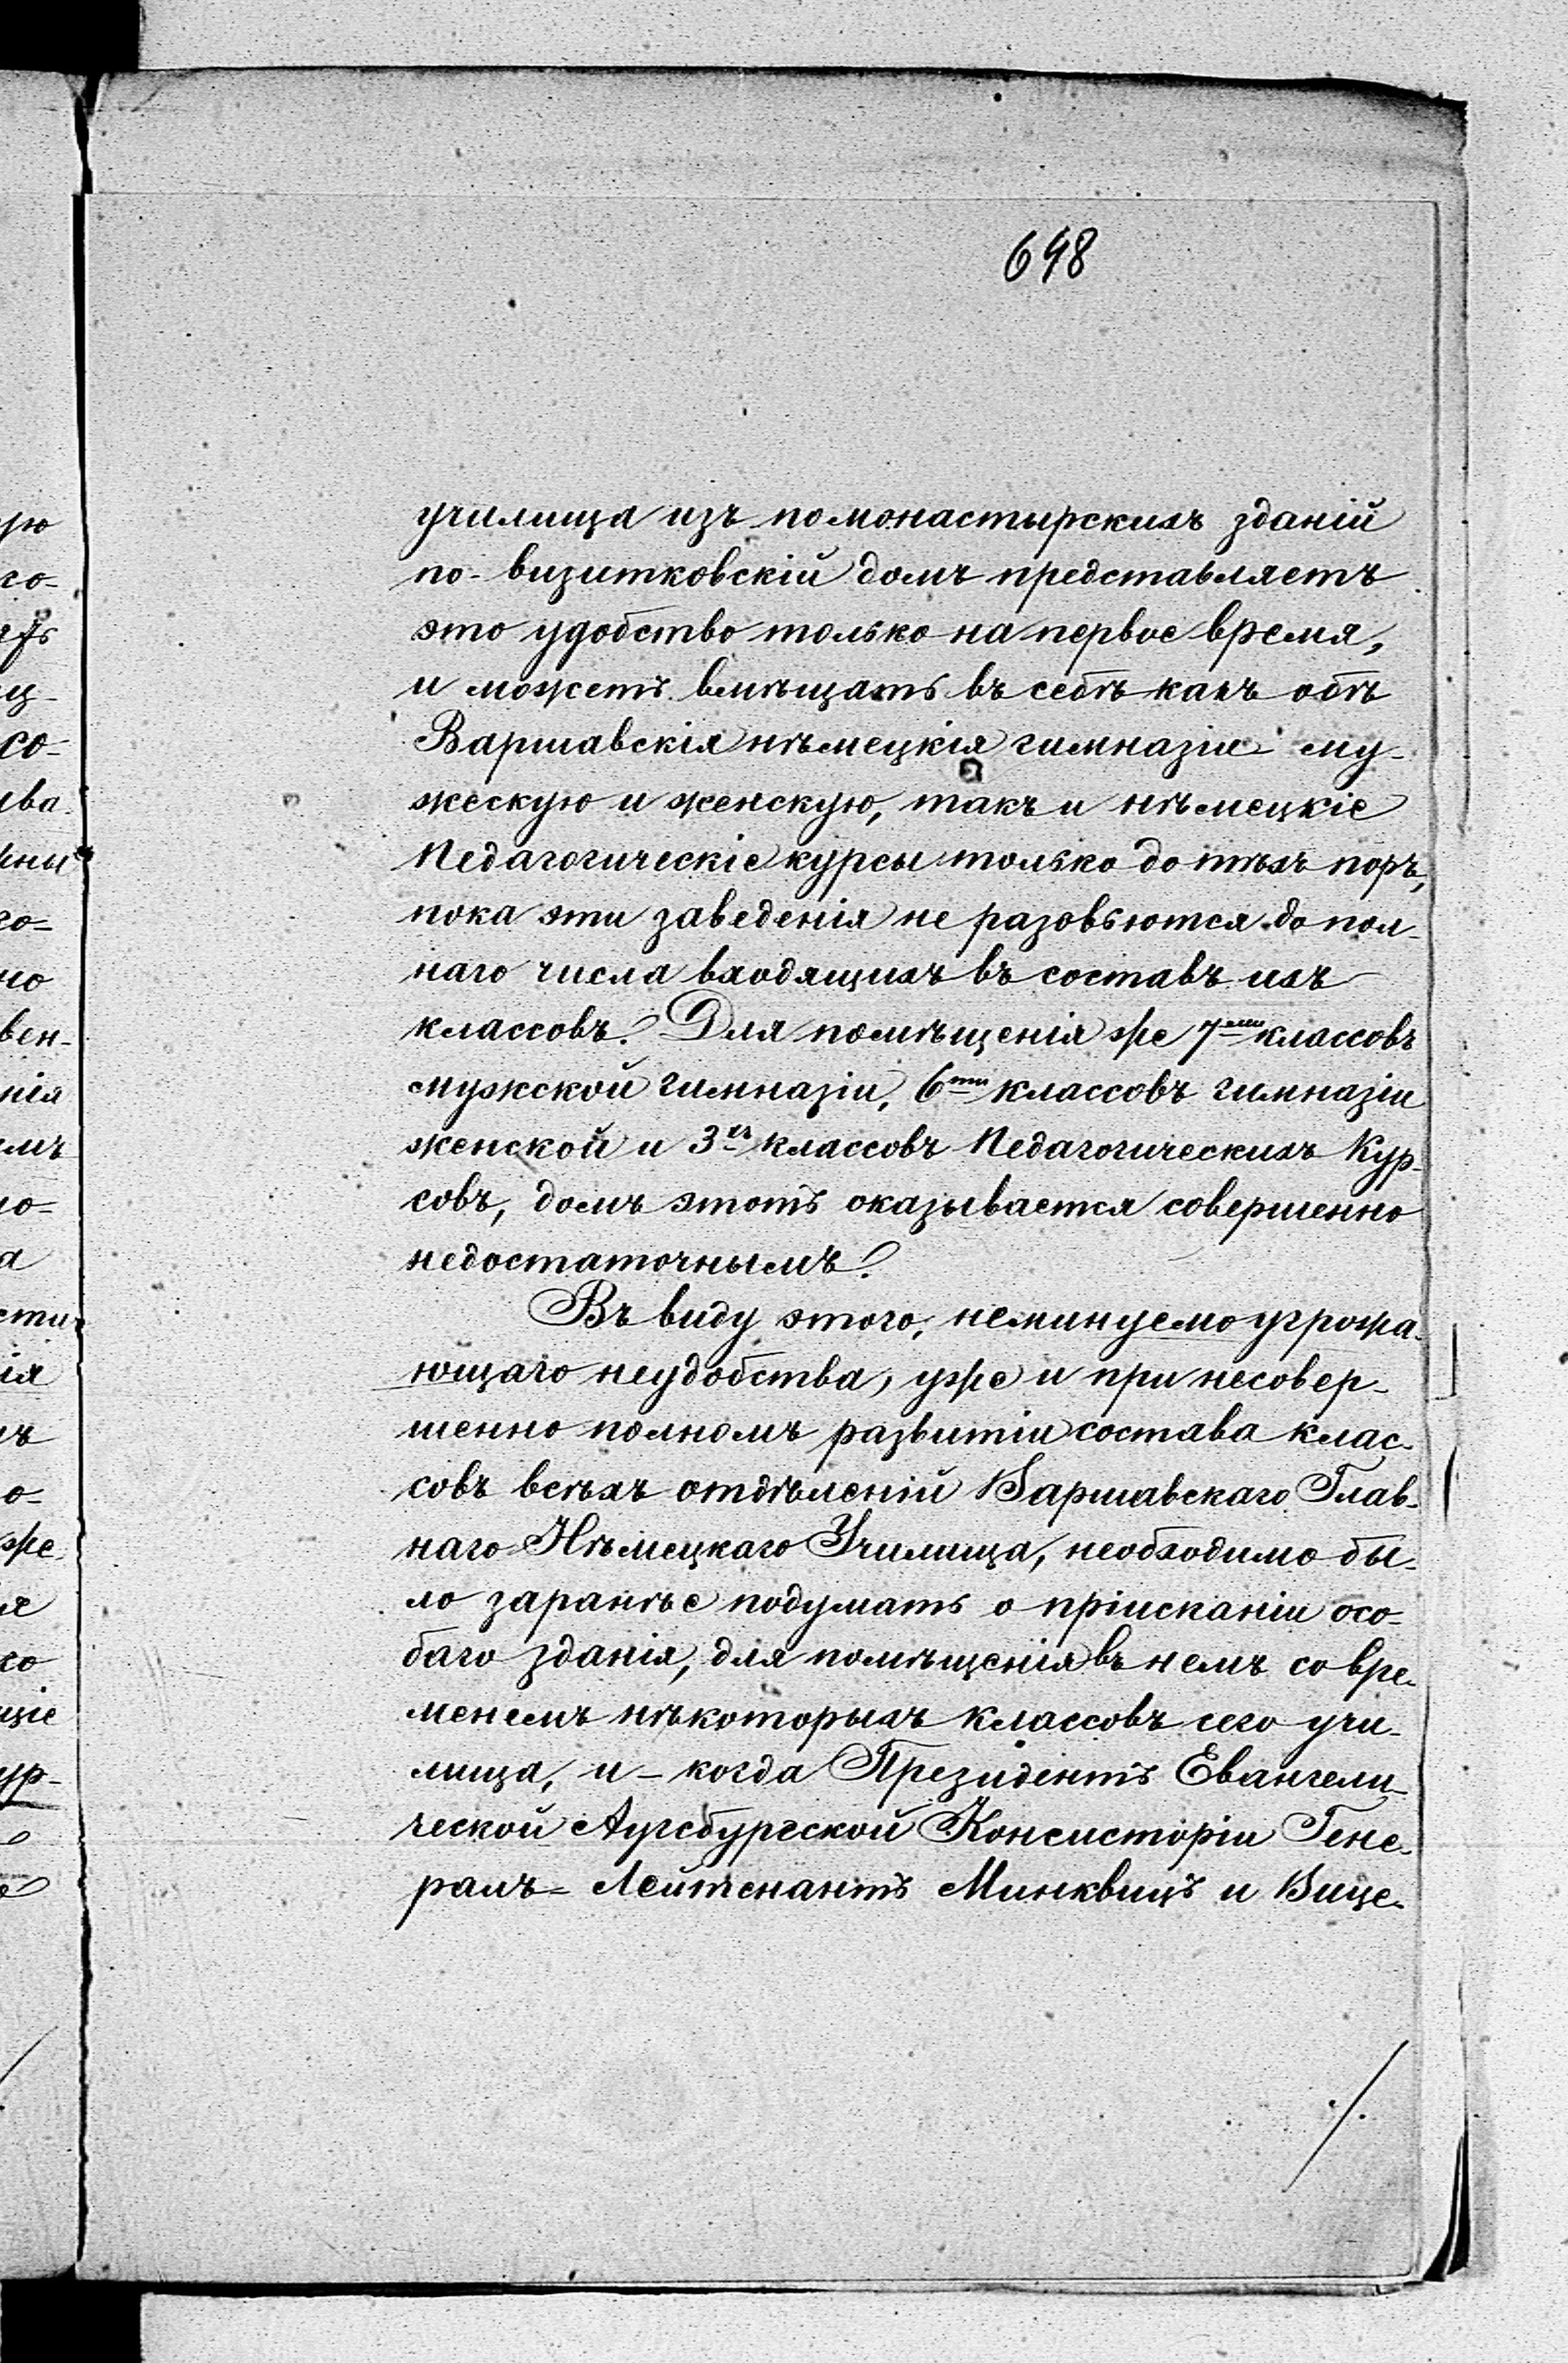 648
училища изъ помонастырскихъ зданій
по-визитковскій домъ представляетъ
это удобство только на первое время,
и можетъ вмѣщать въ себѣ какъ обѣ
Варшавскія нѣмецкія гимназіи му-
жескую и женскую, такъ и нѣмецкіе
Педагогическіе курсы только до тѣхъ поръ,
пока эти заведенія не разовьются до пол-
наго числа входящихъ въ составъ ихъ
классовъ. Для помѣщенія же 7ми классовъ
мужской гимназіи, 6ти классовъ гимназіи
женской и 3хъ классовъ Педагогическихъ Кур-
совъ, домъ этотъ оказывается совершенно
недостаточнымъ.
Въ виду этого, неминуемо угрожа-
ющаго неудобства, уже и при несовер-
шенно полномъ развитіи состава клас-
совъ всѣхъ отдѣленій Варшавскаго Глав-
наго Нѣмецкаго Училища, необходимо бы-
ло заранѣе подумать о пріисканіи осо-
баго зданія, для помѣщенія въ немъ со вре-
менемъ нѣкоторыхъ классовъ сего учи-
лища, и - когда Президентъ Евангели-
ческой Аугсбургской Консисторіи Гене-
ралъ-Лейтенантъ Минквицъ и Вице-
./.